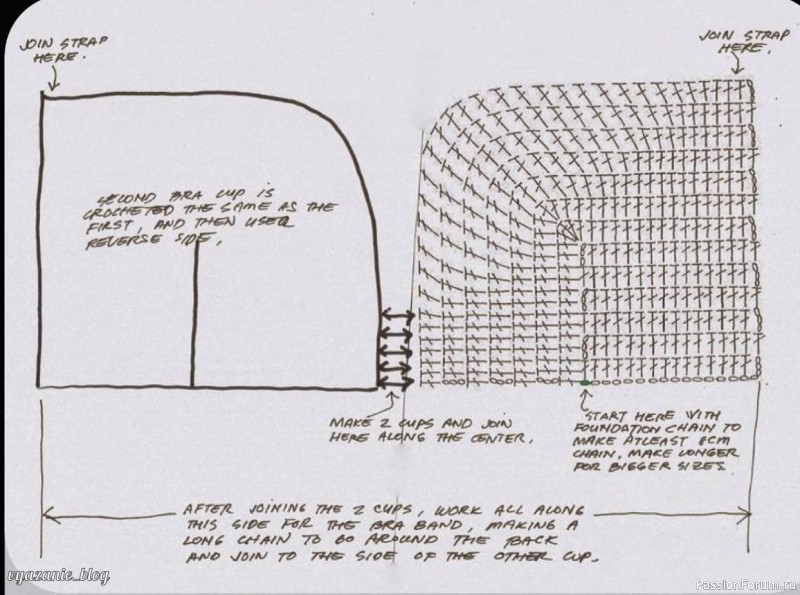 JOIN STRAP
HERE.
JOIN STRAP
HERE,
SECOND BRA CUP IS
CROCHETED THE SAME AS THE
FIRST, AND THEN USED
REVERSE SIDE,
MAKE 2 CUPS AND JOIN
HERE ALONG THE CENTER,
START HERE WITH
FOUNDATION CHAIN TO
MAKE ATLEAST 8CM
CHAIN, MAKE LONGER
FOR BIGGER SIZES
AFTER JOINING THE 2 CUPS, WORK ALL ALONG
THIS SIDE FOR THE BRA BAND, MAKING A
LONG CHAIN TO GO AROUND THE BACK
AND JOIN TO THE SIDE OF THE OTHER CUP,
vyazanie_blog
PassionForum.ru